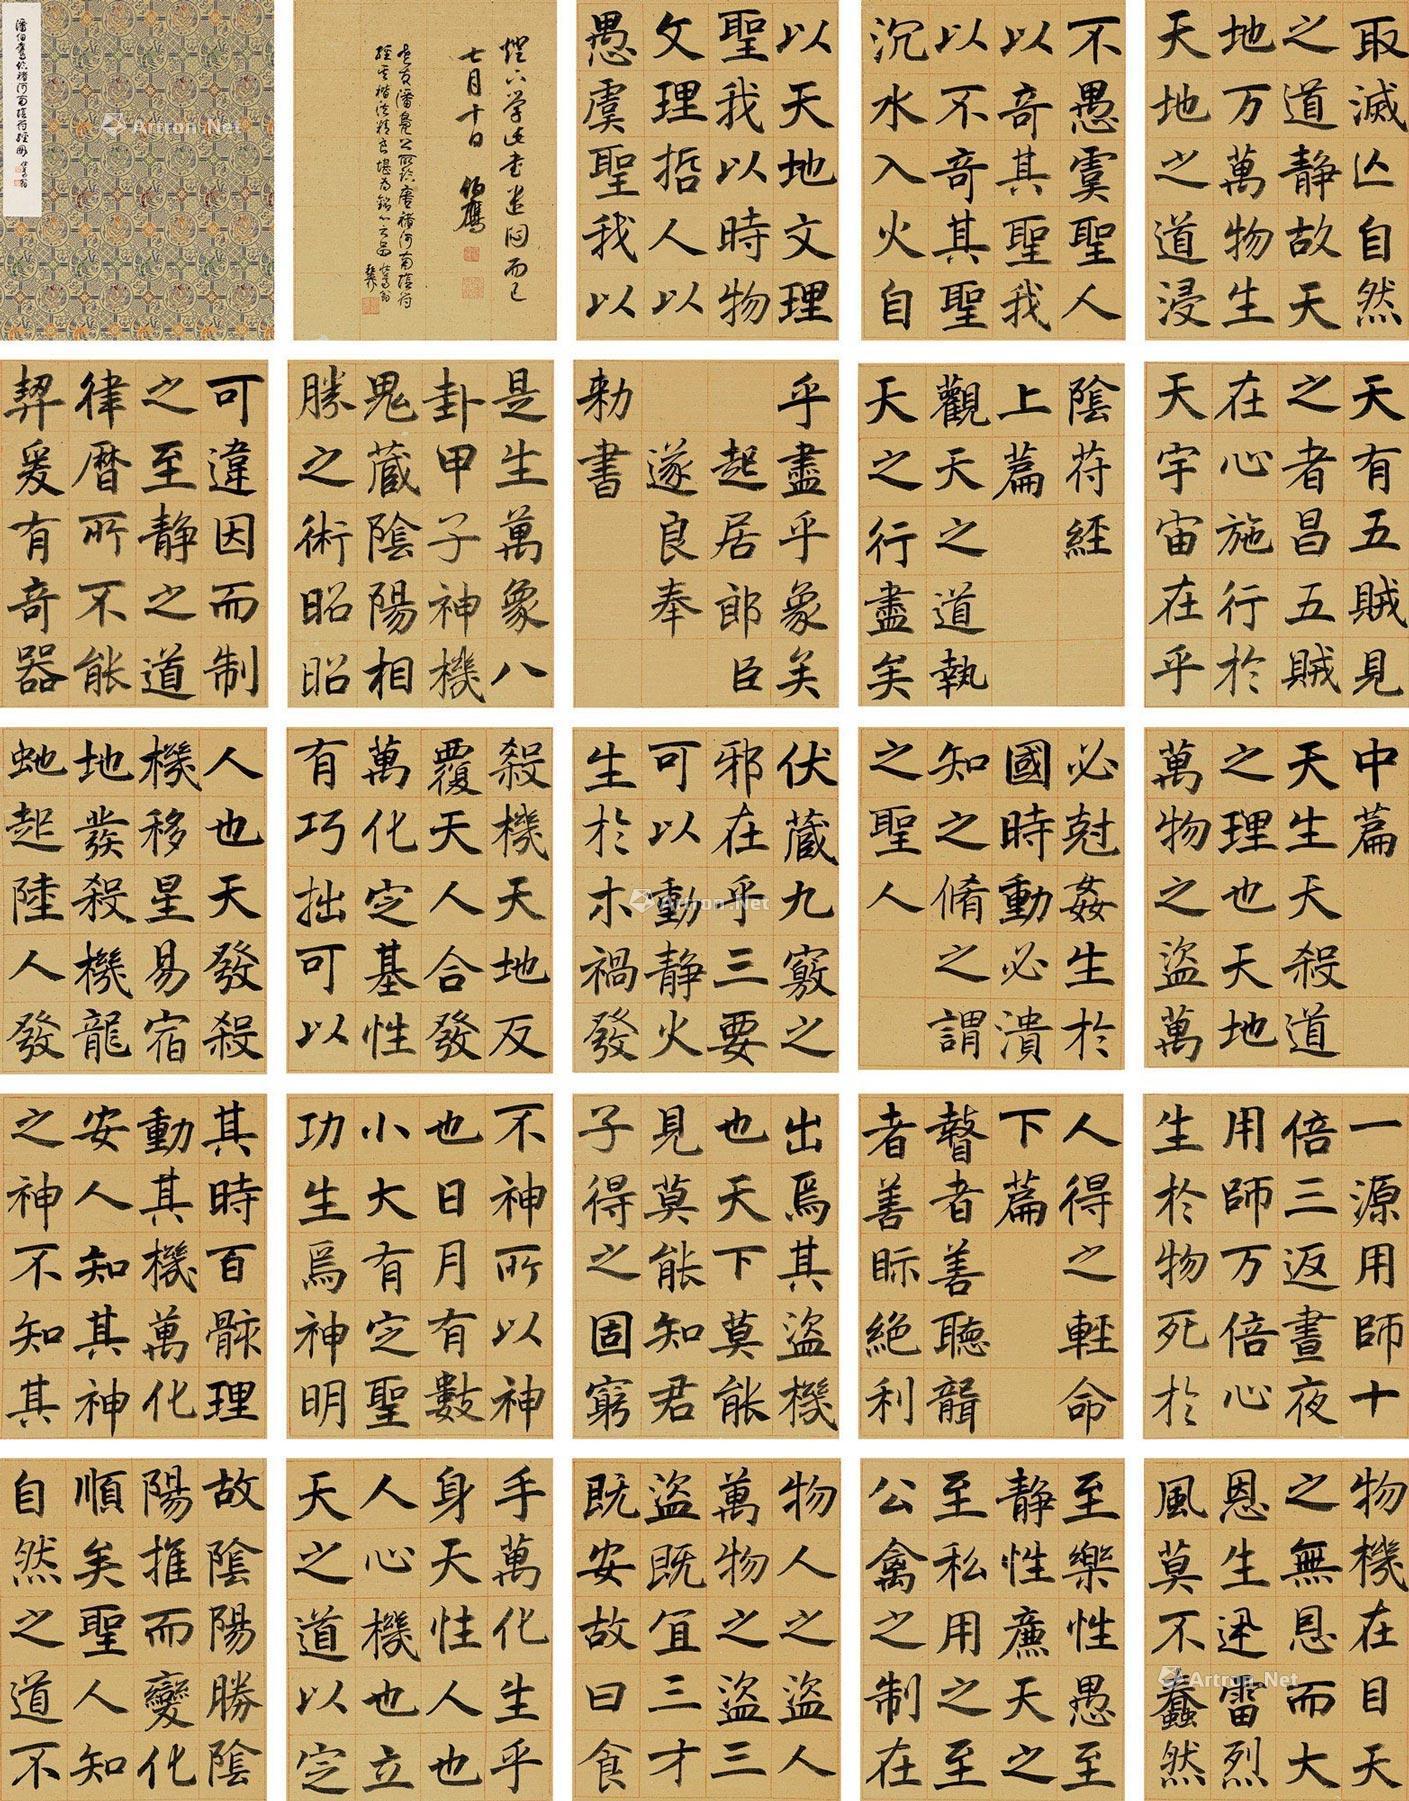 潘伯鷹臨褚河南陰符經冊
燈下學此書遣悶而已
七月十日 伯鷹
老友潘鳧公所臨唐褚河南陰符
經其楷法精良堪為
以天地文理
聖我以時物
文理哲人以
愚虞聖我以
不愚虞聖人
以奇其聖我
以不奇其聖
沉水入火自
取滅亾自然
之道静故天
地万萬物生
天地之道浸
可違因而制
之至静之道
律暦所不能
契爰有奇器
是生萬象八
卦甲子神機
鬼蔵陰陽相
勝之術昭昭
乎盡乎象矣
起居郎臣
遂良奉
勑書
陰苻經
上篇
觀天之道執
天之行盡矣
天有五賊見
之者昌五賊
在心施行於
天宇宙在乎
人也天發殺
機移星易宿
地發殺機龍
虵起陸人發
殺機天地反
覆天人合發
萬化定基性
有巧拙可以
伏蔵九竅之
邪在乎三要
可以動静火
生於木禍發
必尅姦生於
國時動必潰
知之脩之謂
之聖人
中篇
天生天殺道
之理也天地
萬物之盜萬
其時百骸理
動其機萬化
安人知其神
之神不知其
不神所以神
也日月有數
小大有定聖
功生焉神明
出焉其盜機
也天下莫能
見莫能知君
子得之固窮
人得之輕命
下篇
瞽者善聽聾
者善眎絶利
一源用師十
倍三返晝夜
用師万倍心
生於物死於
故陰陽勝陰
陽推而變化
順矣聖人知
自然之道不
手萬化生乎
身天性人也
人心機也立
天之道以定
物人之盜人
萬物之盜三
盜既宜三才
既安故曰食
至樂性愚至
静性廉天之
至私用之至
公禽之制在
物機在目天
之無恩而大
恩生迅雷烈
風莫不蠢然
Artron.Net
Artron.Net
Artron.Net